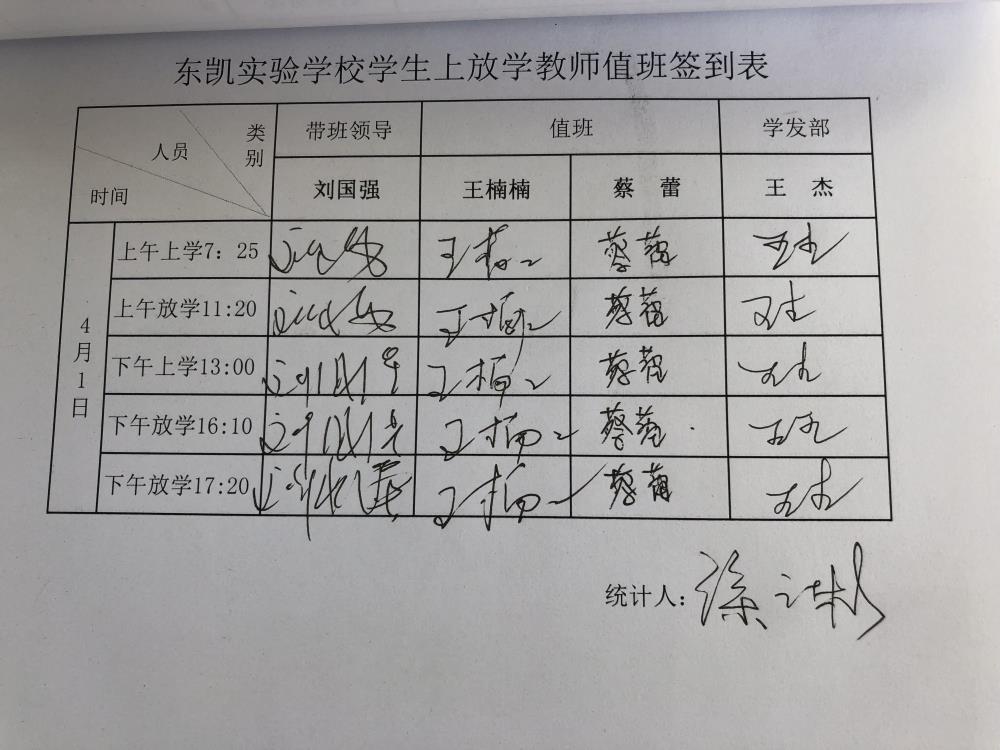 东凯实验学校学生上放学教师值班签到表
类别 人员 时间 带班领导 值班 学发部
刘国强 王楠楠 蔡 蕾 王 杰
4月1日
上午上学7：25 刘国强 王楠楠 蔡蕾 王杰
上午放学11:20 刘国强 王楠楠 蔡蕾 王杰
下午上学13:00 刘国强 王楠楠 蔡蕾 王杰
下午放学16:10 刘国强 王楠楠 蔡蕾 王杰
下午放学17:20 刘国强 王楠楠 蔡蕾 王杰
统计人：